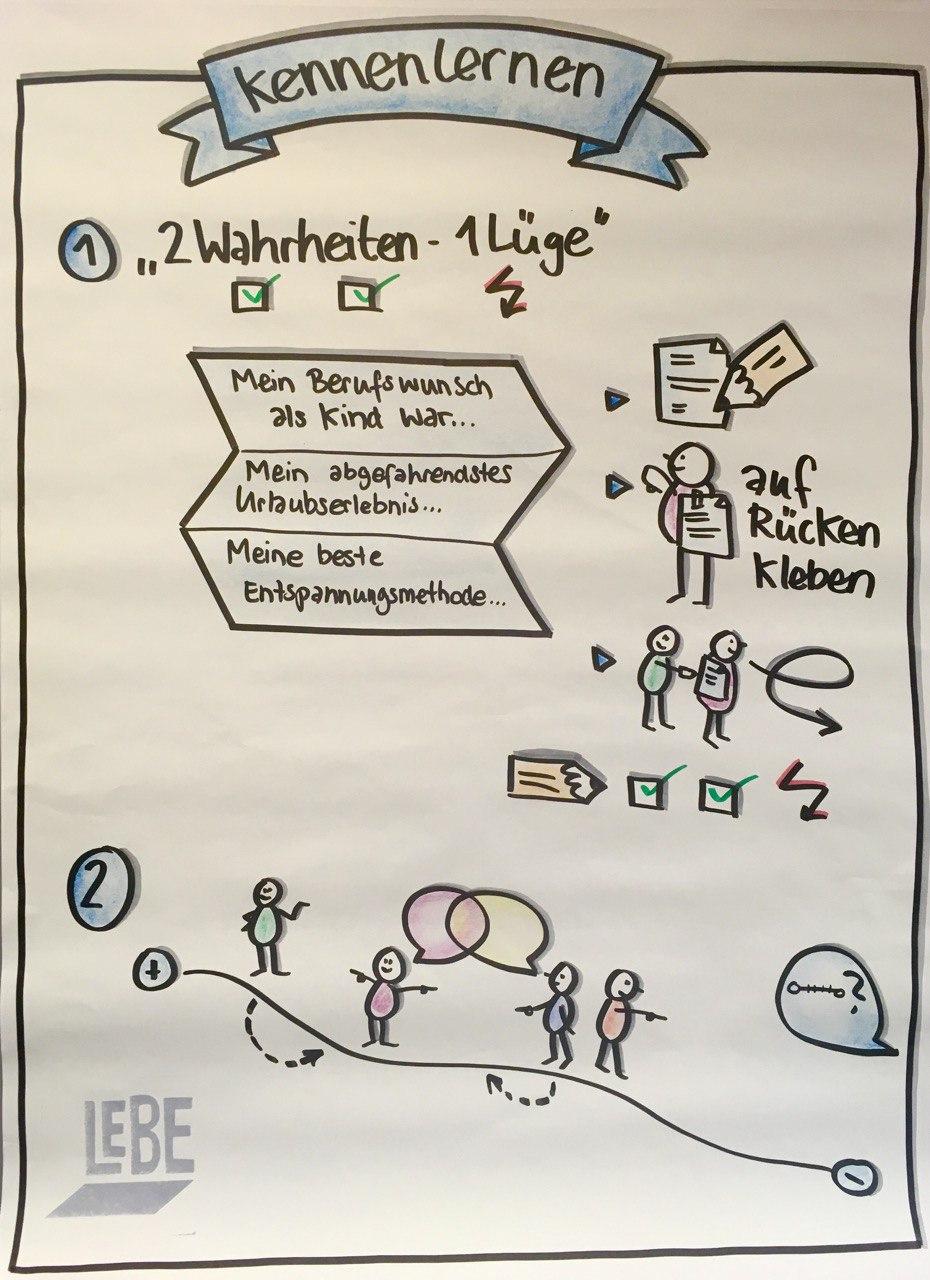 Kennenlernen
1 „2 Wahrheiten - 1 Lüge"
Mein Berufswunsch
als Kind war...
Mein abgefahrendstes
Urlaubserlebnis...
Meine beste
Entspannungsmethode...
auf
Rücken
kleben
2
+
?
-
LEBE